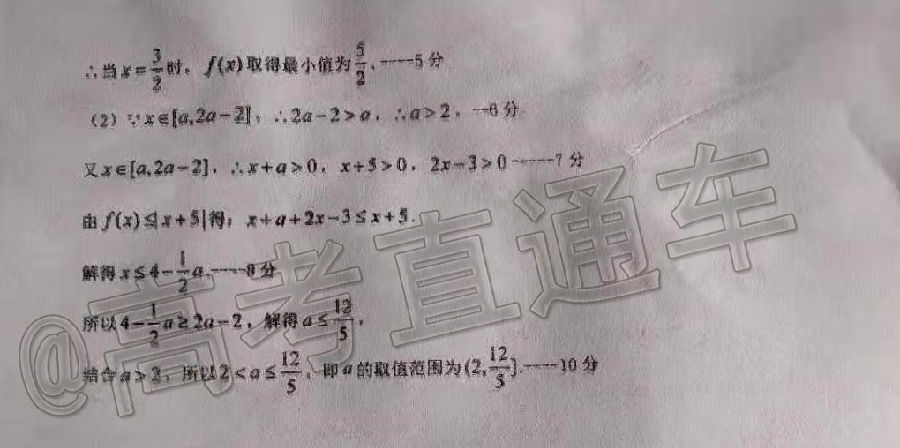 ∴当x=3/2时，f(x)取得最小值为5/2．----5分
（2）∵x∈[a,2a−2]，∴2a−2>a，∴a>2，--6分
又x∈[a,2a−2]，∴x+a>0，x+5>0，2x−3>0-----7分
由f(x)≤|x+5|得，x+a+2x−3≤x+5．
解得x≤4−1/2a．----8分
所以4−1/2a≥2a−2，解得a≤12/5，
结合a>2，所以2<a≤12/5，即a的取值范围为(2,12/5]．----10分
@高考直通车